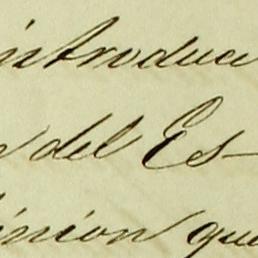 introduce
del Es-
inion que